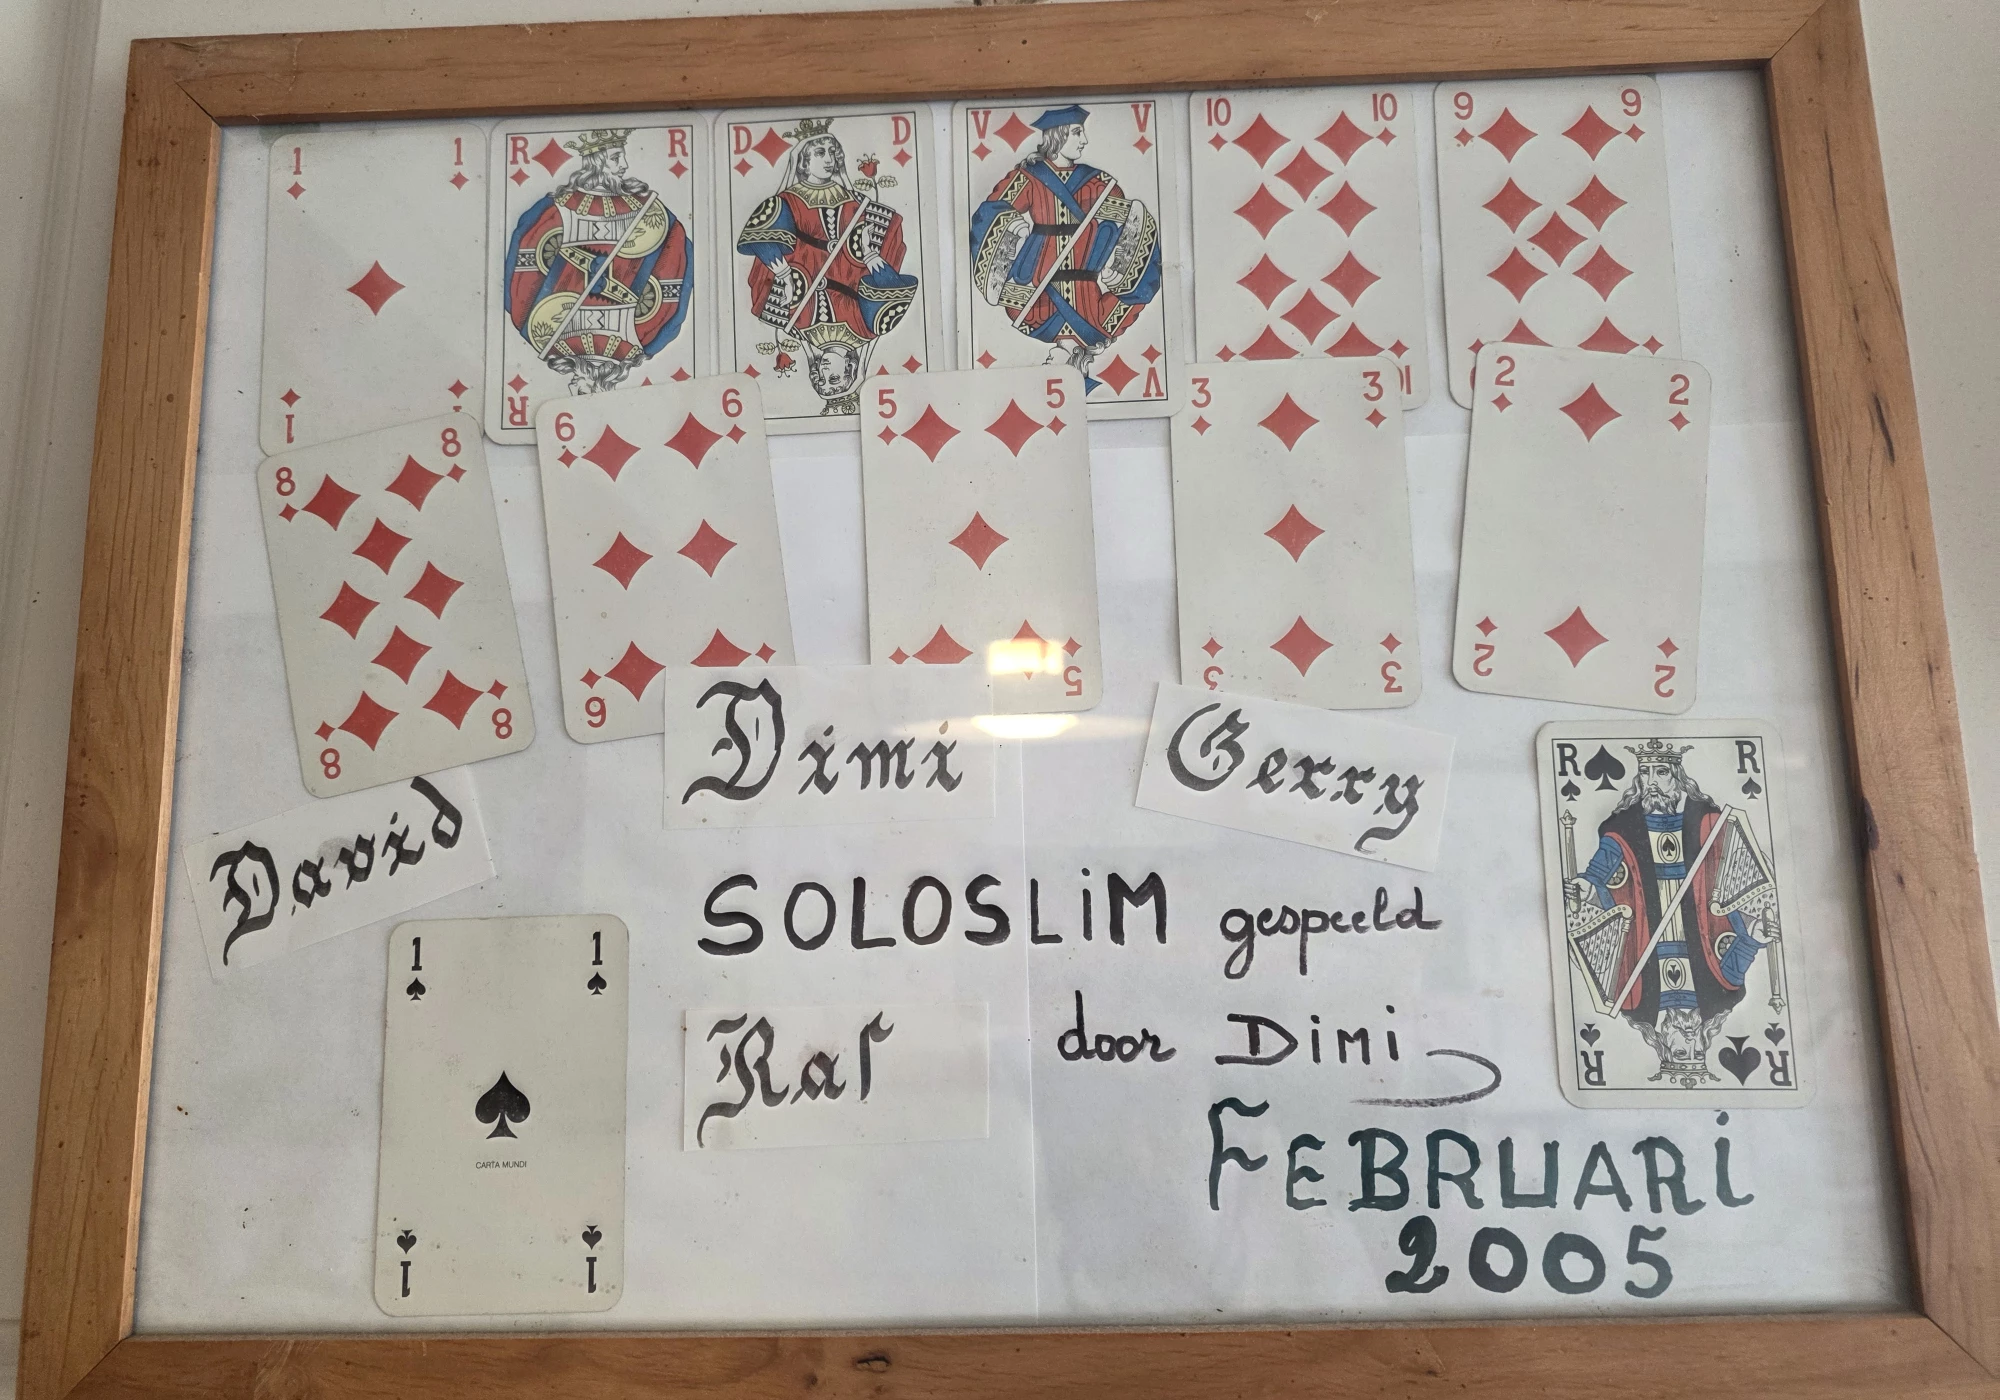 1 1
R R
D D
V V
10 10
9 9
1 1
R
V
10
8 8
6 6
5 5
3 3
2 2
8 8
6
5
3 3
2 2
David
Dimi
Gerry
R R
R R
SOLOSLiM gespeeld
door DiMi
Raf
1 1
CARTA MUNDI
1 1
FEBRUARi
2005